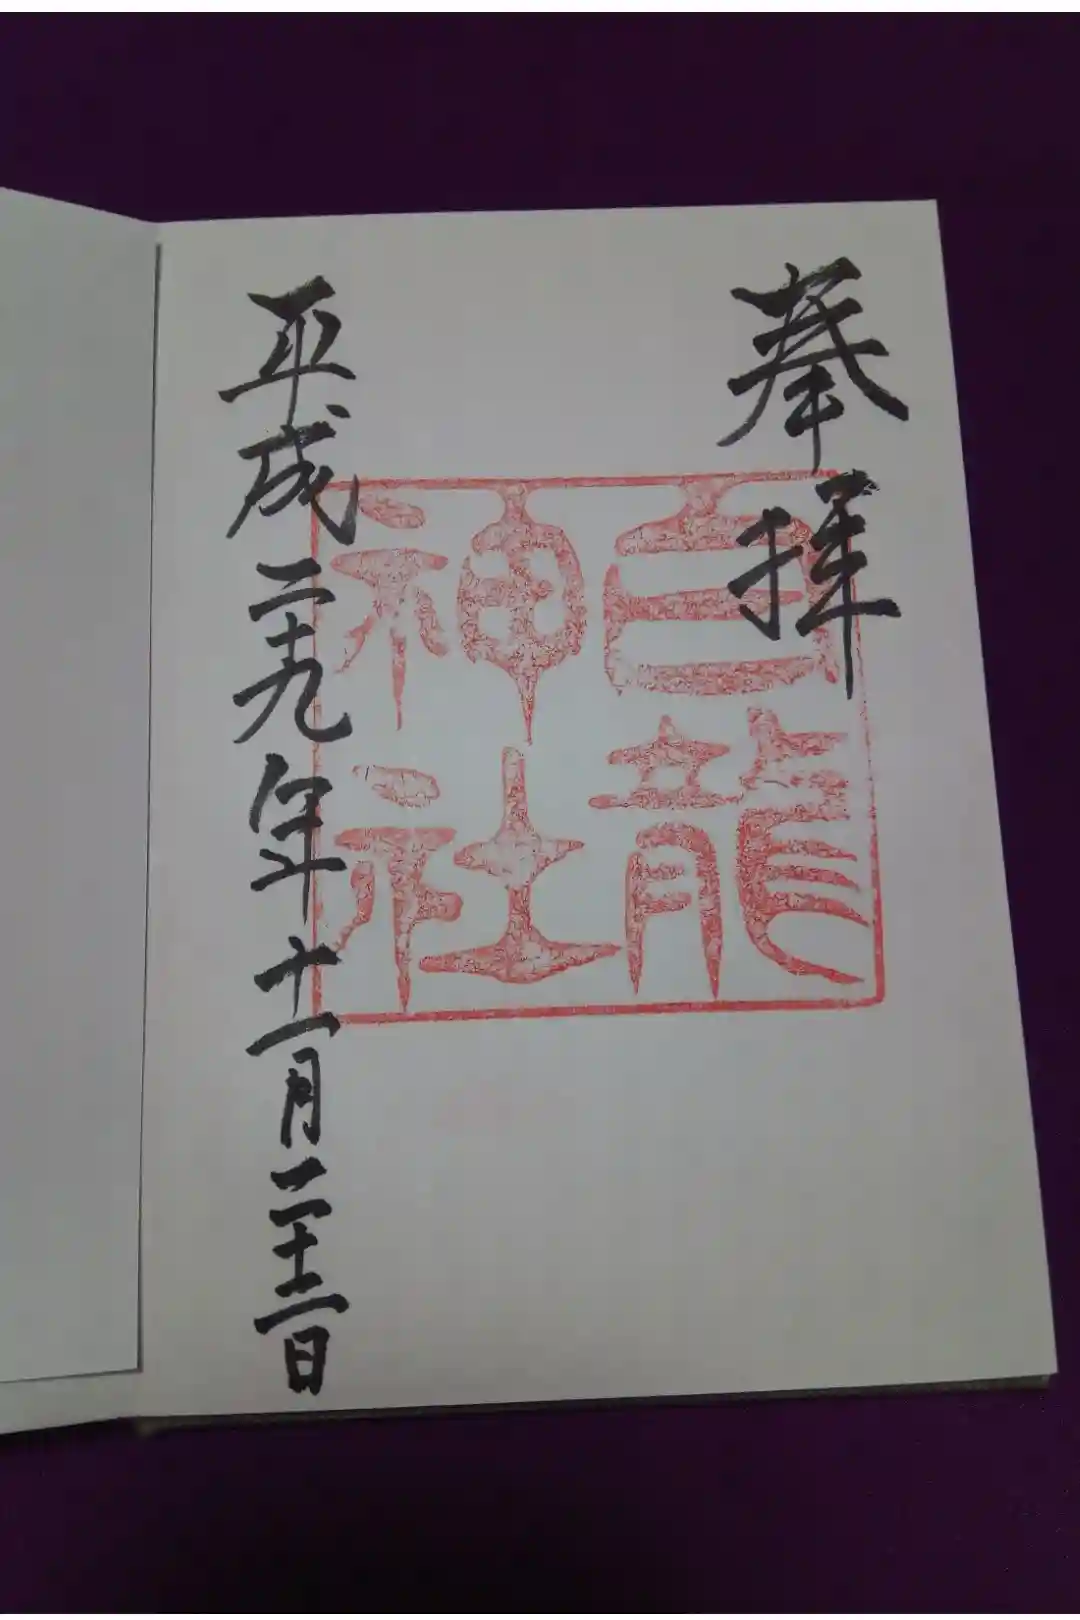 奉拝
白龍
神社
平成二十九年十一月二十二日